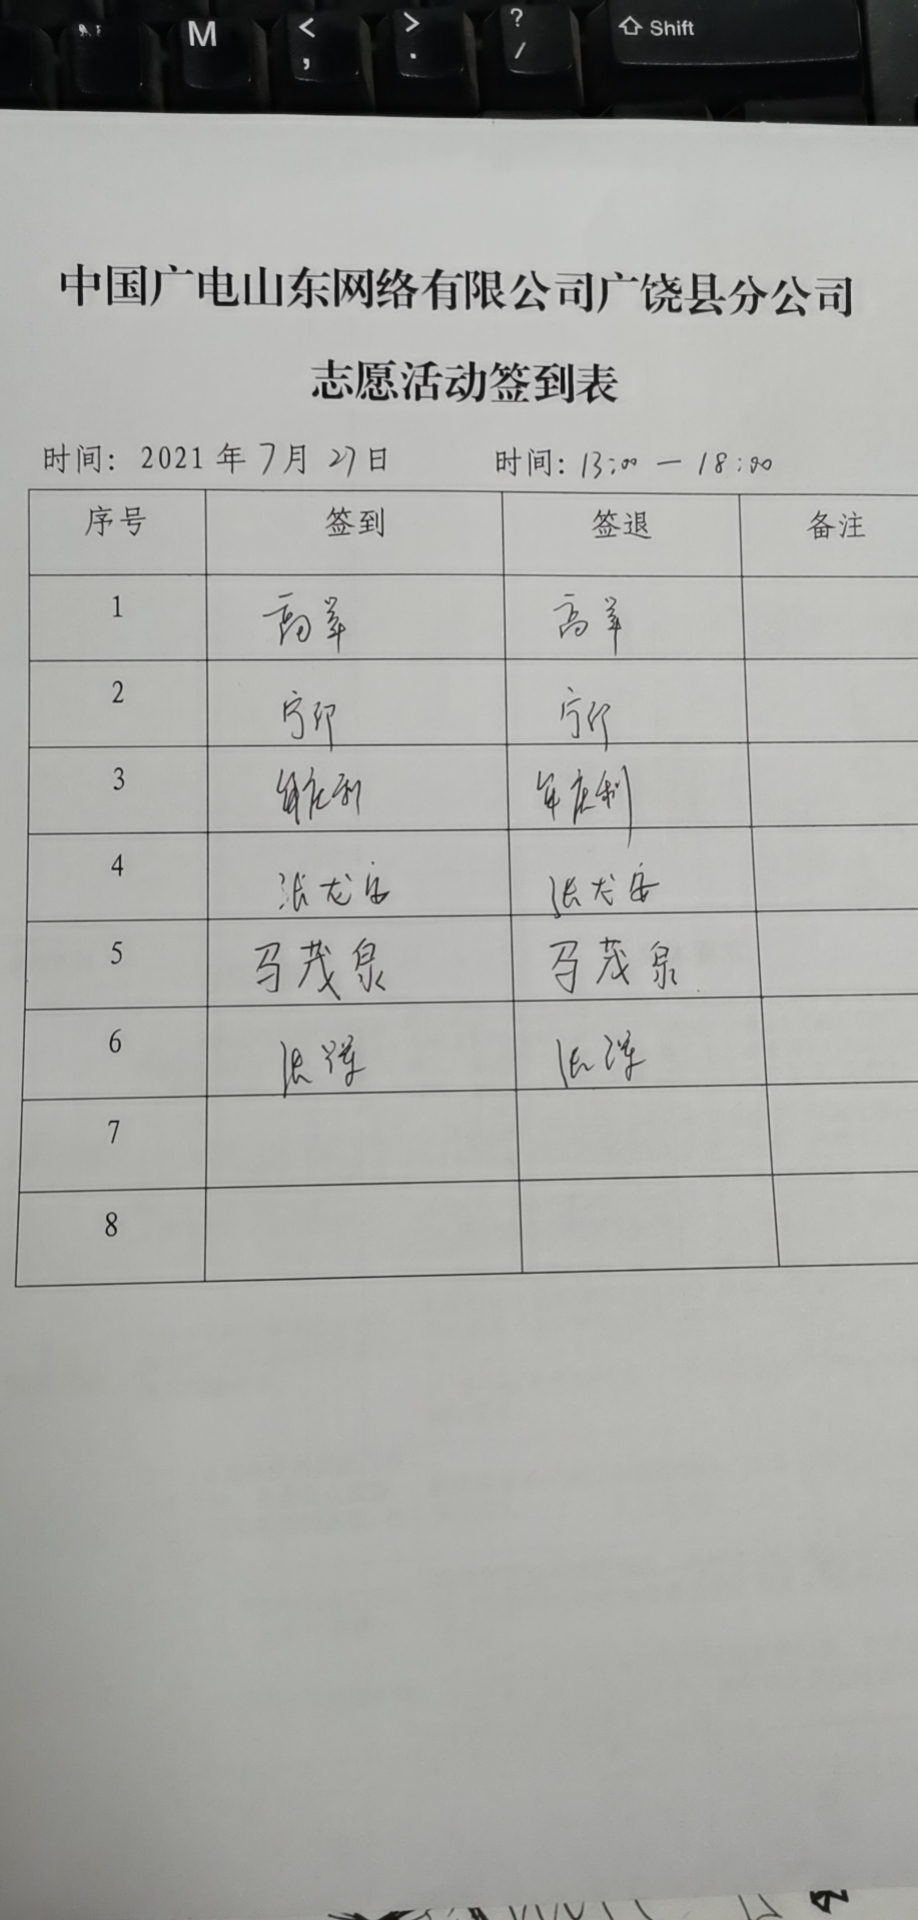 M
<
,
>
.
?
/
Shift
中国广电山东网络有限公司广饶县分公司
志愿活动签到表
时间：2021年7月27日 时间：13:00－18:00
序号 签到 签退 备注
1 高羊 高羊
2 宁印 宁印
3 年庆利 年庆利
4 张龙安 张龙安
5 马茂泉 马茂泉
6 张
7
8